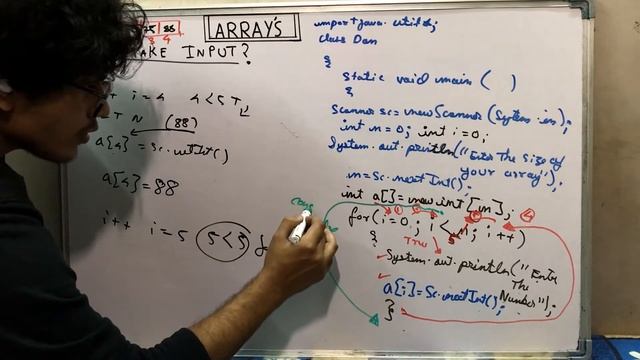 ARRAY'S
35 | 88
3 4
AKE INPUT?
T i=4 4<5 T
T N (88)
a[4] = Sc.nextInt()
a[4] = 88
i++ i=5 5<5 f
import java.util.*;
class Dan
{
static void main ( )
{
Scanner sc = new Scanner (System.in);
int n=0; int i=0;
System.out.println("Enter The Size of
your array");
n=Sc.nextInt();
int a[]=new int [n];
for(i=0; i<n; i++)
True 5
{
System.out.println("Enter
The
Number");
a[i]=Sc.nextInt();
}